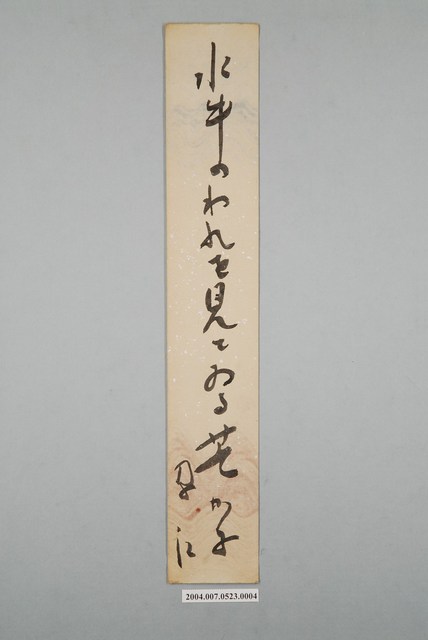 水牛のわれを見てゐる芒かな
江
2004.007.0523.0004